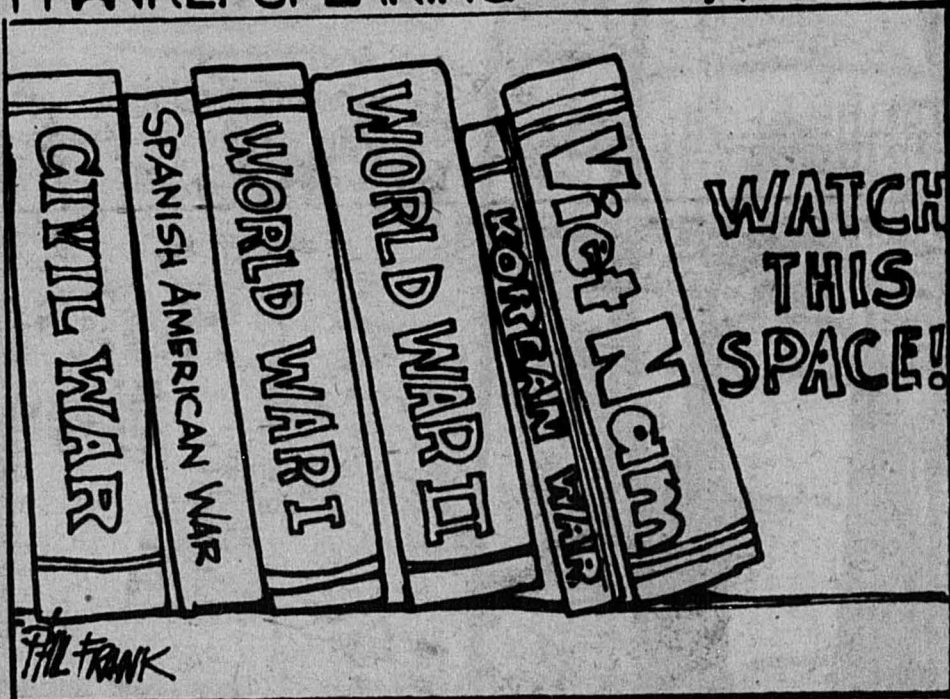 FRANKLY SPEAKING
CIVIL WAR
SPANISH AMERICAN WAR
WORLD WAR I
WORLD WAR II
KOREAN WAR
Viet Nam
WATCH
THIS
SPACE!
PHIL FRANK